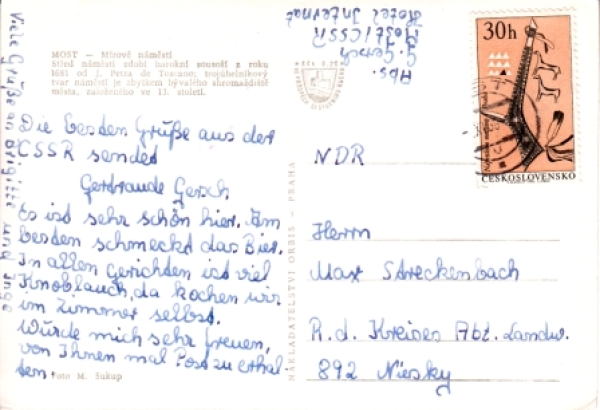 MOST — Mírové náměstí
Střed náměstí zdobí barokní sousoší z roku
1681 od J. Petra de Toscano; trojúhelníkový
tvar náměstí je zbytkem bývalého shromaždiště
města, založeného ve 13. století.
Abs.
G. Gersch
Most/CSSR
Hotel Internat
30h
ČESKOSLOVENSKO
Viele Grüße an Brigitte und Inge
Die besten Grüße aus der
CSSR sendet
Gertraude Gersch
Es ist sehr schön hier. Am
besten schmeckt das Bier.
In allen Gerichten ist viel
Knoblauch, da kochen wir
im Zimmer selbst.
Würde mich sehr freuen,
von Ihnen mal Post zu erhal
ten.
Foto M. Sukup
NAKLADATELSTVÍ ORBIS – PRAHA
NDR
Herrn
Max Streckenbach
R. d. Kreises Abt. Landw.
892 Niesky